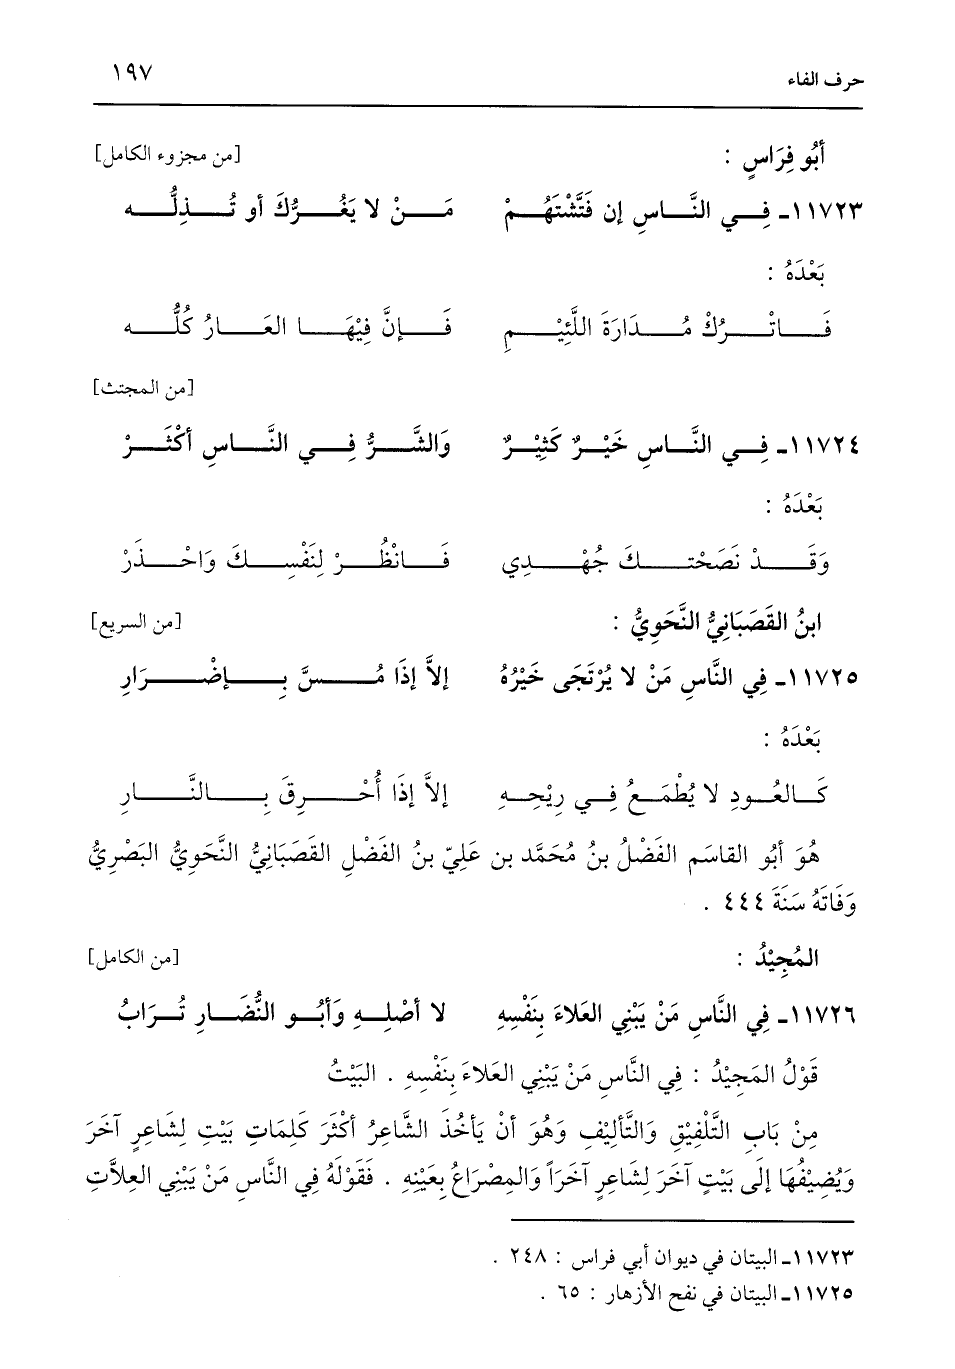 حرف الفاء ١٩٧
أَبُو فِرَاسٍ : [من مجزوء الكامل]
١١٧٢٣ـ فِي النَّاسِ إن فَتَّشْتَهُمْ مَنْ لا يَغُرُّكَ أو تُذِلُّه
بَعْدَهُ :
فَاتْرُكْ مُدَارَةَ اللَّئِيْمِ فَإنَّ فِيْهَا العَارُ كُلُّه
[من المجتث]
١١٧٢٤ـ فِي النَّاسِ خَيْرٌ كَثِيْرٌ وَالشَّرُّ فِي النَّاسِ أكْثَرْ
بَعْدَهُ :
وَقَدْ نَصَحْتكَ جُهْدِي فَانْظُرْ لِنَفْسِكَ وَاحْذَرْ
ابنُ القَصَبَانِيُّ النَّحَوِيُّ : [من السريع]
١١٧٢٥ـ فِي النَّاسِ مَنْ لا يُرْتَجَى خَيْرُهُ إلاَّ إذَا مُسَّ بِإضْرَارِ
بَعْدَهُ :
كَالعُودِ لا يُطْمَعُ فِي رِيْحِهِ إلاَّ إذَا أُحْرِقَ بِالنَّارِ
هُوَ أَبُو القاسَم الفَضْلُ بنُ مُحَمَّد بن عَلِيّ بنُ الفَضْلِ القَصَبَانِيُّ النَّحَوِيُّ البَصْرِيُّ
وَفَاتَهُ سَنَةَ ٤٤٤ .
المُجِيْدُ : [من الكامل]
١١٧٢٦ـ فِي النَّاسِ مَنْ يَبْنِي العَلاءَ بِنَفْسِهِ لا أصْلِهِ وَأَبُو النُّضَارِ تُرَابُ
قَوْلُ المَجِيْدُ : فِي النَّاسِ مَنْ يَبْنِي العَلاءَ بِنَفْسِهِ . البَيْتُ
مِنْ بَابِ التَّلْفِيْقِ وَالتَّأليْفِ وَهُوَ أنْ يَأخُذَ الشَّاعِرُ أكْثَرَ كَلِمَاتِ بَيْتِ لِشَاعِرٍ آخَرَ
وَيُضِيْفُهَا إلَى بَيْتٍ آخَرَ لِشَاعِرٍ آخَرَاً وَالمِصْرَاعُ بِعَيْنِهِ . فَقَوْلَهُ فِي النَّاسِ مَنْ يَبْنِي العِلاَّتِ
١١٧٢٣ـ البيتان في ديوان أبي فراس : ٢٤٨ .
١١٧٢٥ـ البيتان في نفح الأزهار : ٦٥ .